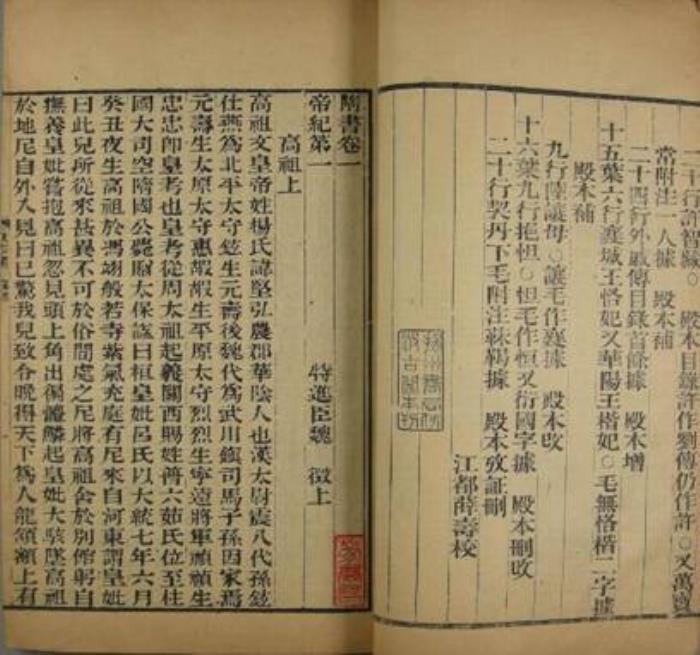 二十行
殿本目錄許作
傳仍作許○又萬寶
常附注一人據　殿本補
二十四行外戚傳目錄首條據　殿本增
十五葉六行襄城王恪妃又華陽王楷妃○毛無恪楷二字據
殿本補
九行陸讓母○讓毛作襄據　殿本改
十六葉九行抱怛○怛毛作恒又衍國字據　殿本刪改
二十行契丹下毛附注靺鞨據　殿本攷証刪
江都薛壽校
隋書卷一
特進臣魏　徵上
帝紀第一
高祖上
高祖文皇帝姓楊氏諱堅弘農郡華陰人也漢太尉震八代孫鉉
仕燕爲北平太守鉉生元壽後魏代爲武川鎮司馬子孫因家焉
元壽生太原太守惠嘏嘏生平原太守烈烈生寧遠將軍禎禎生
忠忠卽皇考也皇考從周太祖起義關西賜姓普六茹氏位至柱
國大司空隋國公薨贈太保諡曰桓皇妣呂氏以大統七年六月
癸丑夜生高祖於馮翊般若寺紫氣充庭有尼來自河東謂皇妣
曰此兒所從來甚異不可於俗間處之尼將高祖舍於別館躬自
撫養皇妣嘗抱高祖忽見頭上角出徧體鱗起皇妣大駭墜高祖
於地尼自外入見曰已驚我兒致令晚得天下爲人龍頷額上有